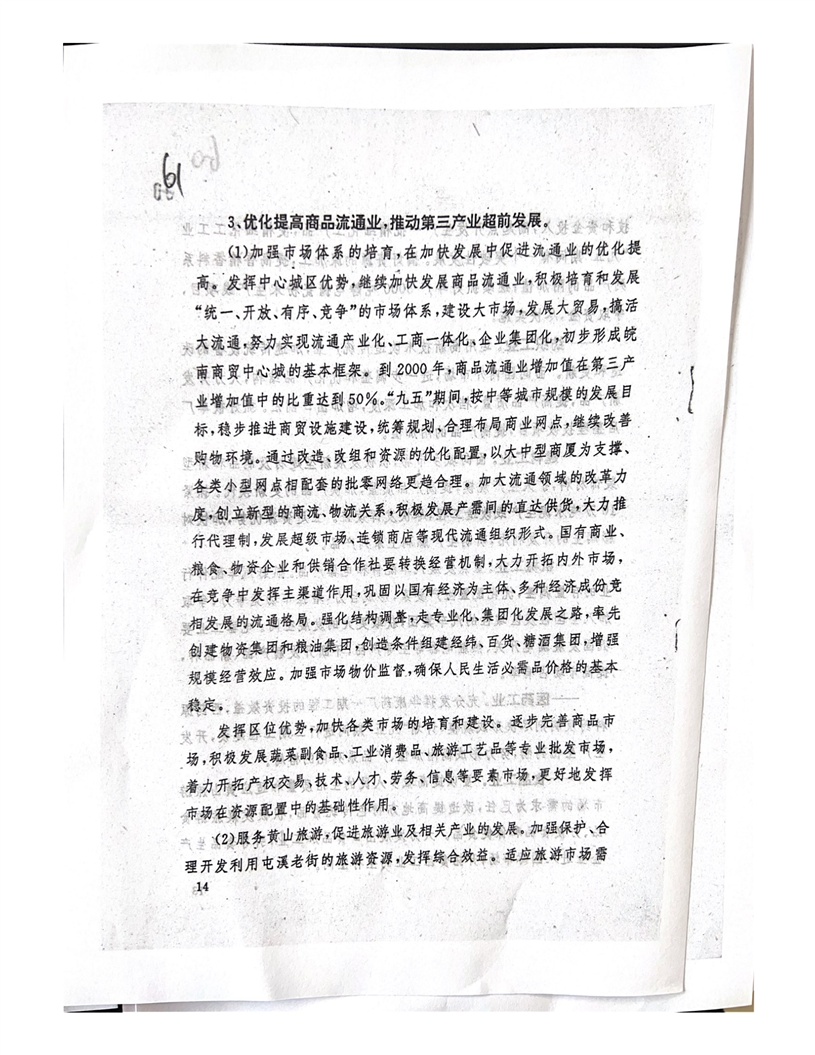 61
3、优化提高商品流通业,推动第三产业超前发展。
(1)加强市场体系的培育,在加快发展中促进流通业的优化提
高。发挥中心城区优势,继续加快发展商品流通业,积极培育和发展
“统一、开放、有序、竞争”的市场体系,建设大市场,发展大贸易,搞活
大流通,努力实现流通产业化、工商一体化、企业集团化,初步形成皖
南商贸中心城的基本框架。到2000年,商品流通业增加值在第三产
业增加值中的比重达到50%。“九五”期间,按中等城市规模的发展目
标,稳步推进商贸设施建设,统筹规划、合理布局商业网点,继续改善
购物环境。通过改造、改组和资源的优化配置,以大中型商厦为支撑、
各类小型网点相配套的批零网络更趋合理。加大流通领域的改革力
度,创立新型的商流、物流关系,积极发展产需间的直达供货,大力推
行代理制,发展超级市场、连锁商店等现代流通组织形式。国有商业、
粮食、物资企业和供销合作社要转换经营机制,大力开拓内外市场,
在竞争中发挥主渠道作用,巩固以国有经济为主体、多种经济成份竞
相发展的流通格局。强化结构调整,走专业化、集团化发展之路,率先
创建物资集团和粮油集团,创造条件组建经纬、百货、糖酒集团,增强
规模经营效应。加强市场物价监督,确保人民生活必需品价格的基本
稳定。
发挥区位优势,加快各类市场的培育和建设。逐步完善商品市
场,积极发展蔬菜副食品、工业消费品、旅游工艺品等专业批发市场,
着力开拓产权交易、技术、人才、劳务、信息等要素市场,更好地发挥
市场在资源配置中的基础性作用。
(2)服务黄山旅游,促进旅游业及相关产业的发展。加强保护、合
理开发利用屯溪老街的旅游资源,发挥综合效益。适应旅游市场需
14